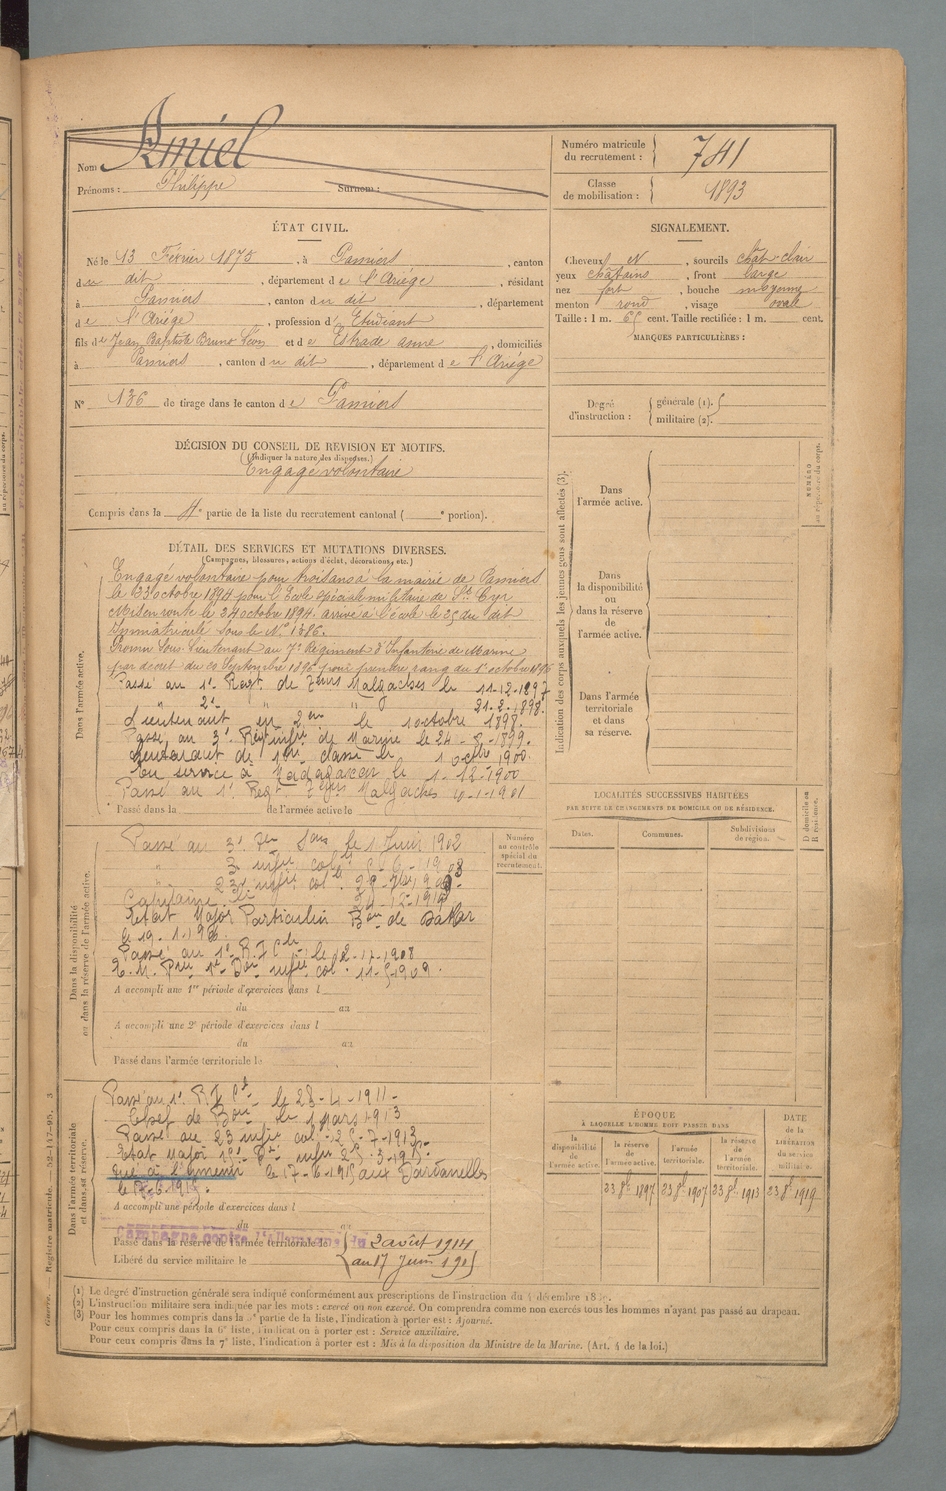 Amiel
Nom
Prénoms : Philippe Surnom :
Numéro matricule du recrutement : 741
Classe de mobilisation : 1893
ÉTAT CIVIL.
Né le 13 Février 1875, à Pamiers, canton
du dit, département de l'Ariége, résidant
à Pamiers, canton du dit, département
de l'Ariége, profession d'Etudiant
fils de Jean Baptiste Bruno Léon et de Estrade anne, domiciliés
à Pamiers, canton du dit, département de l'Ariége
N° 136 de tirage dans le canton de Pamiers
SIGNALEMENT.
Cheveux N, sourcils chât-clair
yeux châtains, front large
nez fort, bouche moyenne
menton rond, visage ovale
Taille : 1 m. 65 cent. Taille rectifiée : 1 m. cent.
MARQUES PARTICULIÈRES :
Degré d'instruction : générale (1). militaire (2).
DÉCISION DU CONSEIL DE REVISION ET MOTIFS.
(Indiquer la nature des dispenses.)
Engagé volontaire
Compris dans la 4e partie de la liste du recrutement cantonal ( e portion).
DÉTAIL DES SERVICES ET MUTATIONS DIVERSES.
(Campagnes, blessures, actions d'éclat, décorations, etc.)
Dans l'armée active.
Engagé volontaire pour trois ans à la mairie de Pamiers
le 23 octobre 1894 pour l'Ecole spéciale militaire de St Cyr
Mis en route le 24 octobre 1894. arrivé à l'école le 25 du dit
Immatriculé sous le N° 1386.
Promu Sous-Lieutenant au 7e Régiment d'Infanterie de Marine
par décret du Septembre 1896 pour prendre rang du 1er octobre 1896
Passé au 1er Regt de Tirrs Malgaches le 11-12-1897
" 2e " 21-2-1898.
Lieutenant en 2me le 1 octobre 1898.
Passé au 3e Regt infie de Marine le 24-8-1899.
Lieutenant de 1ère classe le 1 octbre 1900.
En service à Madagascar le 1-12-1900
Passé au 1er Regt Tirrs Malgaches 1-1901
Passé dans la de l'armée active le
Indication des corps auxquels les jeunes gens sont affectés (3).
Dans l'armée active.
Dans la disponibilité ou dans la réserve de l'armée active.
Dans l'armée territoriale et dans sa réserve.
NUMÉRO au répertoire du corps.
LOCALITÉS SUCCESSIVES HABITÉES
PAR SUITE DE CHANGEMENTS DE DOMICILE OU DE RÉSIDENCE.
Dates. Communes. Subdivisions de région. D domicile ou R résidence.
Dans la disponibilité ou dans la réserve de l'armée active.
Numéro au contrôle spécial du recrutement.
Passé au 3e le 1 Juin 1902
23e infie col
Capitaine
Etat Major Particulier Bon de Dakar
le 19.1.
Passé au 1er R.I.C. le 12-11-1908
E.M. 1e infie col. 11-5-1909.
A accompli une 1re période d'exercices dans l
du au
A accompli une 2e période d'exercices dans l
du au
Passé dans l'armée territoriale le
Dans l'armée territoriale et dans sa réserve.
Passé au 1er R.I.C. le 23-4-1911
Chef de Bon le 1 mars 1913
Passé au 23 infie col. 25-7-1913.
Etat Major 1e infie 1915.
Tué à l'ennemi le 17-6-1915 aux Dardanelles
le 17.6.1915.
A accompli une période d'exercices dans l
du au
Campagne contre l'Allemagne du 2 août 1914
au 17 Juin 1915
Passé dans la réserve de l'armée territoriale le
Libéré du service militaire le
ÉPOQUE
À LAQUELLE L'HOMME DOIT PASSER DANS
la disponibilité de l'armée active. la réserve de l'armée active. l'armée territoriale. la réserve de l'armée territoriale.
DATE de la LIBÉRATION du service militaire.
23 8bre 1897 23 8bre 1907 23 8bre 1913 23 8bre 1919
(1) Le degré d'instruction générale sera indiqué conformément aux prescriptions de l'instruction du 4 décembre
(2) L'instruction militaire sera indiquée par les mots : exercé ou non exercé. On comprendra comme non exercés tous les hommes n'ayant pas passé au drapeau.
(3) Pour les hommes compris dans la 5e partie de la liste, l'indication à porter est : Ajourné.
Pour ceux compris dans la 6e liste, l'indication à porter est : Service auxiliaire.
Pour ceux compris dans la 7e liste, l'indication à porter est : Mis à la disposition du Ministre de la Marine. (Art. 4 de la loi.)
Guerre. — Registre matricule. — 52-147-95. 3